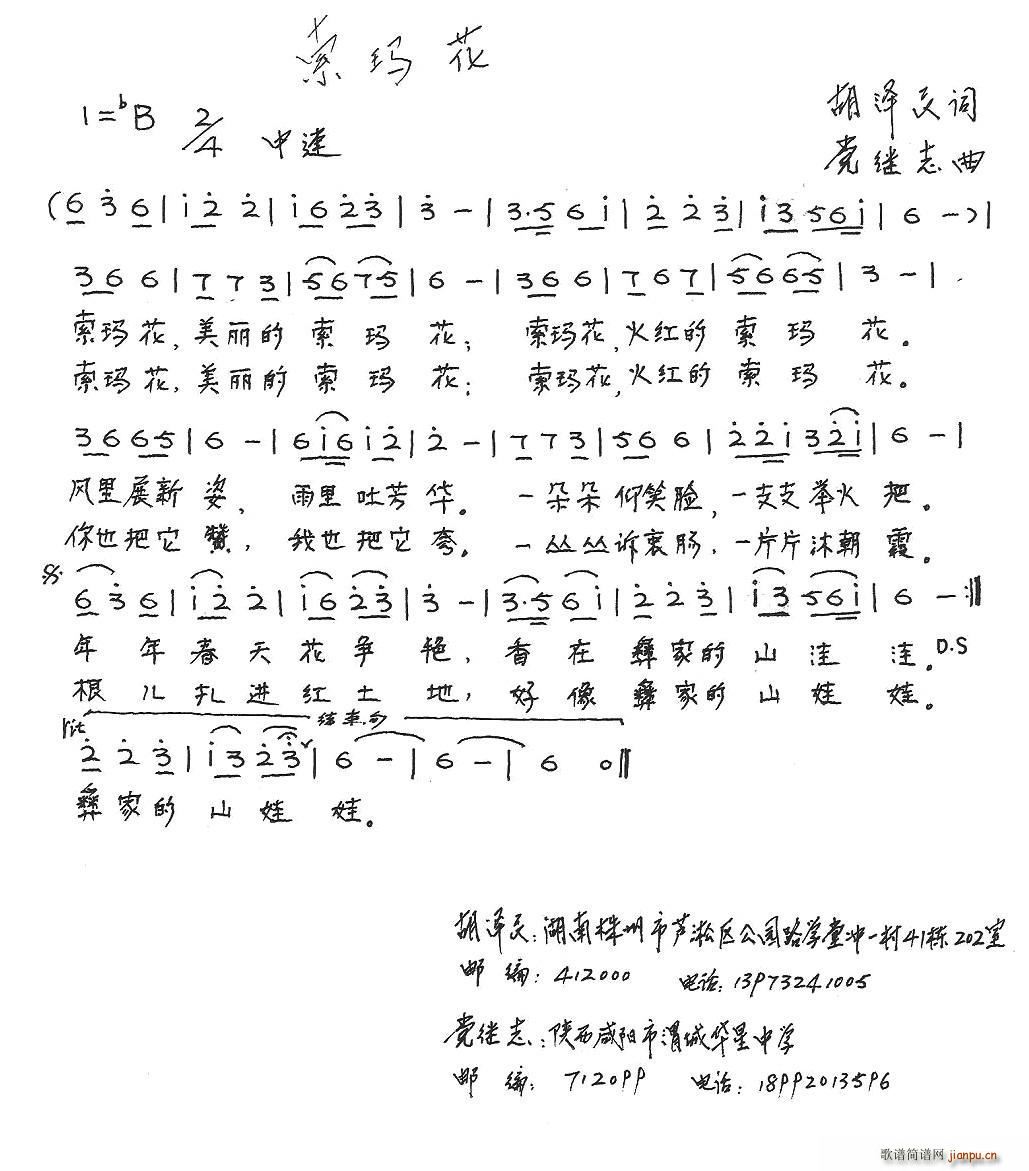 索玛花
1=♭B 2/4 中速
胡泽民词
党继志曲
(6 3̇ 6 | i 2̇ 2̇ | i 6 2̇ 3̇ | 3̇ - | 3·5 6 i | 2̇ 2̇ 3̇ | i 3 5 6 i | 6 - ) |
3 6 6 | 7 7 3 | 5 6 7 5 | 6 - | 3 6 6 | 7 6 7 | 5 6 6 5 | 3 - |
索玛花,美丽的 索 玛 花; 索玛花,火红的 索 玛 花。
索玛花,美丽的 索 玛 花; 索玛花,火红的 索 玛 花。
3 6 6 5 | 6 - | 6 i 6 i 2̇ | 2̇ - | 7 7 3 | 5 6 6 | 2̇ 2̇ i 3 2̇ i | 6 - |
风里展新 姿, 雨里吐芳 华。 一朵朵 仰笑脸,一支支举火 把。
你也把它 赞, 我也把它 夸。 一丛丛诉衷肠,一片片沐朝 霞。
𝄋 6 3̇ 6 | i 2̇ 2̇ | i 6 2̇ 3̇ | 3̇ - | 3·5 6 i | 2̇ 2̇ 3̇ | i 3 5 6 i | 6 - :‖
年 年 春 天 花 争 艳, 香 在 彝家的 山 洼 洼。D.S
根 儿 扎 进 红 土 地, 好 像 彝家的 山 娃 娃。
rit 结束句
2̇ 2̇ 3̇ | i 3 2̇ 3̇ | 6 - | 6 - | 6 0 ‖
彝 家 的 山 娃 娃。
胡泽民:湖南株州市芦淞区公园路学堂冲一村41栋202室
邮 编: 412000 电话:13973241005
党继志:陕西咸阳市渭城华星中学
邮 编: 712099 电话:18992013596
歌谱简谱网
jianpu.cn